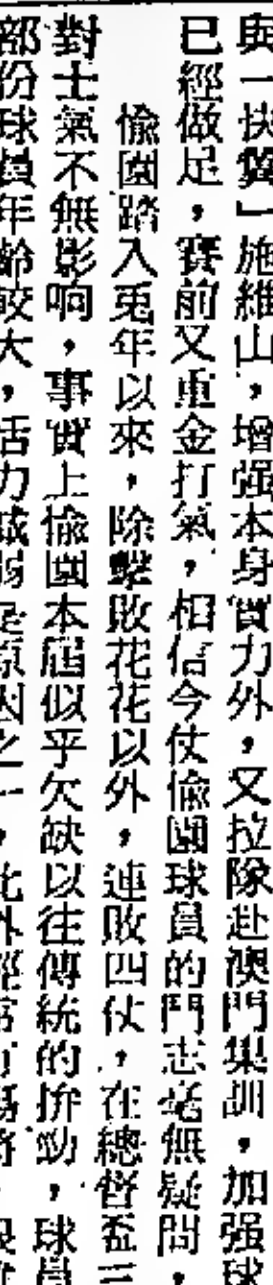 與「快翼」施維山，增强本身實力外，又拉隊赴澳門集訓，加强球
已經做足，賽前又重金打氣，相信今仗愉園球員的鬥志毫無疑問，
愉園踏入兎年以來，除擊敗花花以外，連敗四仗，在總督盃三
對士氣不無影响，事實上愉園本屆似乎欠缺以往傳統的拚勁，球員
部份球員年齡較大，活力減弱是原因之一，此外經常有傷將，